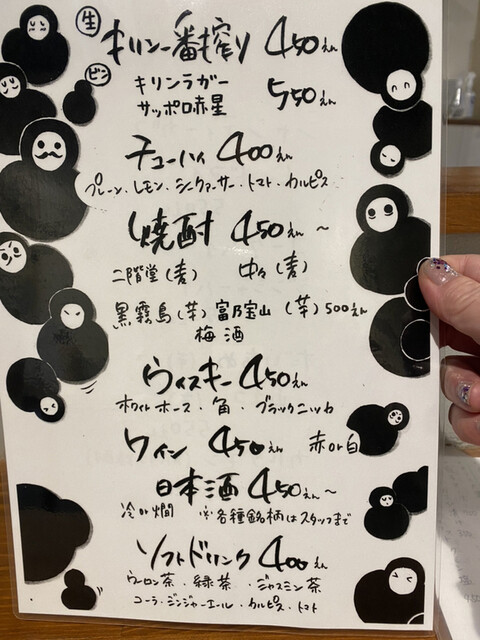 生 キリン一番搾り 450えん
ビン キリンラガー
サッポロ赤星 550えん
チューハイ 400えん
プレーン・レモン・シークァーサー・トマト・カルピス
焼酎 450えん〜
二階堂(麦) 中々(麦)
黒霧島(芋) 富乃宝山(芋)500えん
梅酒
ウィスキー 450えん
ホワイトホース・角・ブラックニッカ
ワイン 450えん 赤or白
日本酒 450えん〜
冷or燗 ※各種銘柄はスタッフまで
ソフトドリンク 400えん
ウーロン茶・緑茶・ジャスミン茶
コーラ・ジンジャーエール・カルピス・トマト